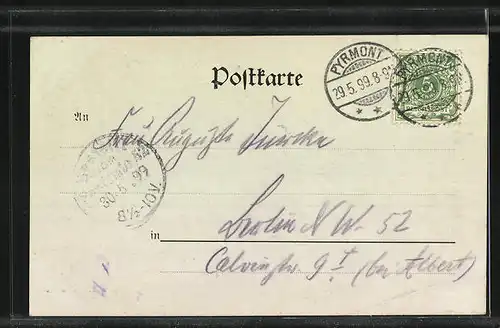 Postkarte
PYRMONT
29.5.99. 8-9
PYRMONT
5
An
Frau Auguste
30.5.99
8½-10V.
in
Berlin NW. 52
Calvinstr. 9 I (bei Albert)